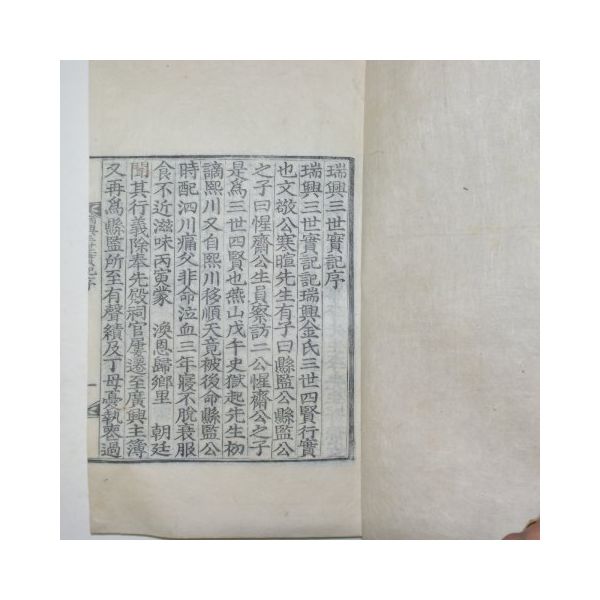 瑞興三世實記序
瑞興三世實記記瑞興金氏三世四賢行實
也文敬公寒暄先生有子曰縣監公縣監公
之子曰惺齋公生員察訪二公惺齋公之子
是爲三世四賢也燕山戊午史獄起先生初
謫熙川又自熙川移順天竟被後命縣監公
時配泗川痛父非命泣血三年寢不脫衰服
食不近滋味丙寅蒙 渙恩歸鄉里 朝廷
聞其行義除奉先殿祠官屢遷至廣興主簿
又再爲縣監所至有聲績及丁母憂執喪過